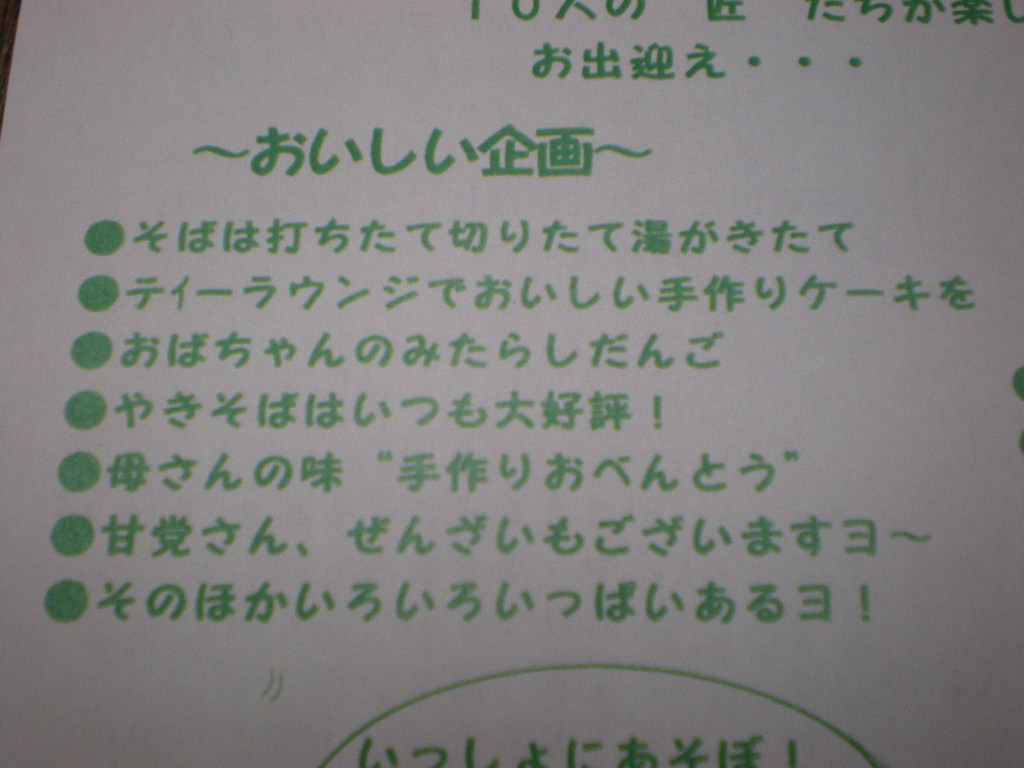 10人の 匠 たちが楽し
お出迎え・・・
～おいしい企画～
●そばは打ちたて切りたて湯がきたて
●ティーラウンジでおいしい手作りケーキを
●おばちゃんのみたらしだんご
●やきそばはいつも大好評！
●母さんの味“手作りおべんとう”
●甘党さん、ぜんざいもございますヨ～
●そのほかいろいろいっぱいあるヨ！
いっしょにあそぼ！